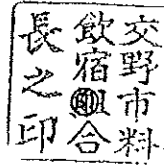 交野市料
飲宿組合
長之印